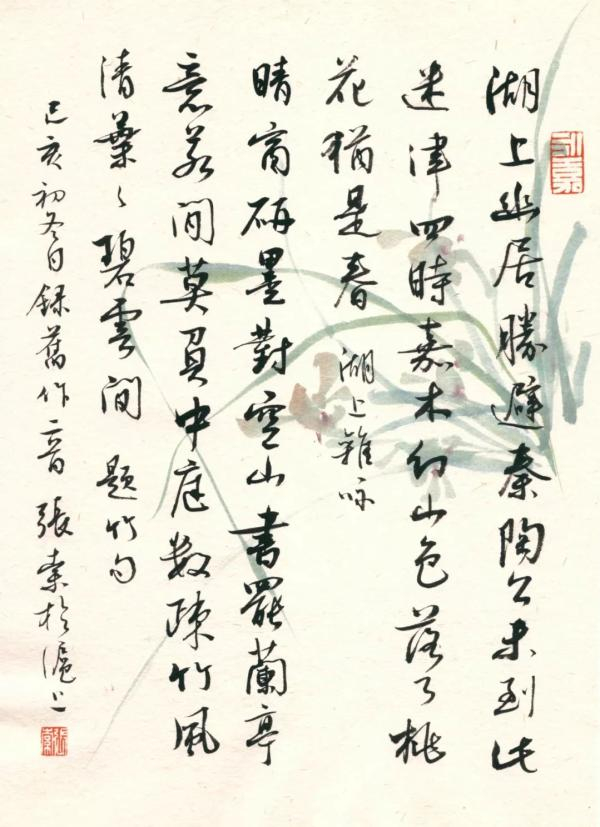 湖上幽居勝避秦陶公未到此
迷津四時嘉木幻山色落了桃
花猶是春 湖上雜咏
晴窗研墨對空山書罷蘭亭
意若間莫負中庭數疎竹風
清葉々碧雲間 題竹句
己亥初冬日録舊作二首 張索於滬上
張索